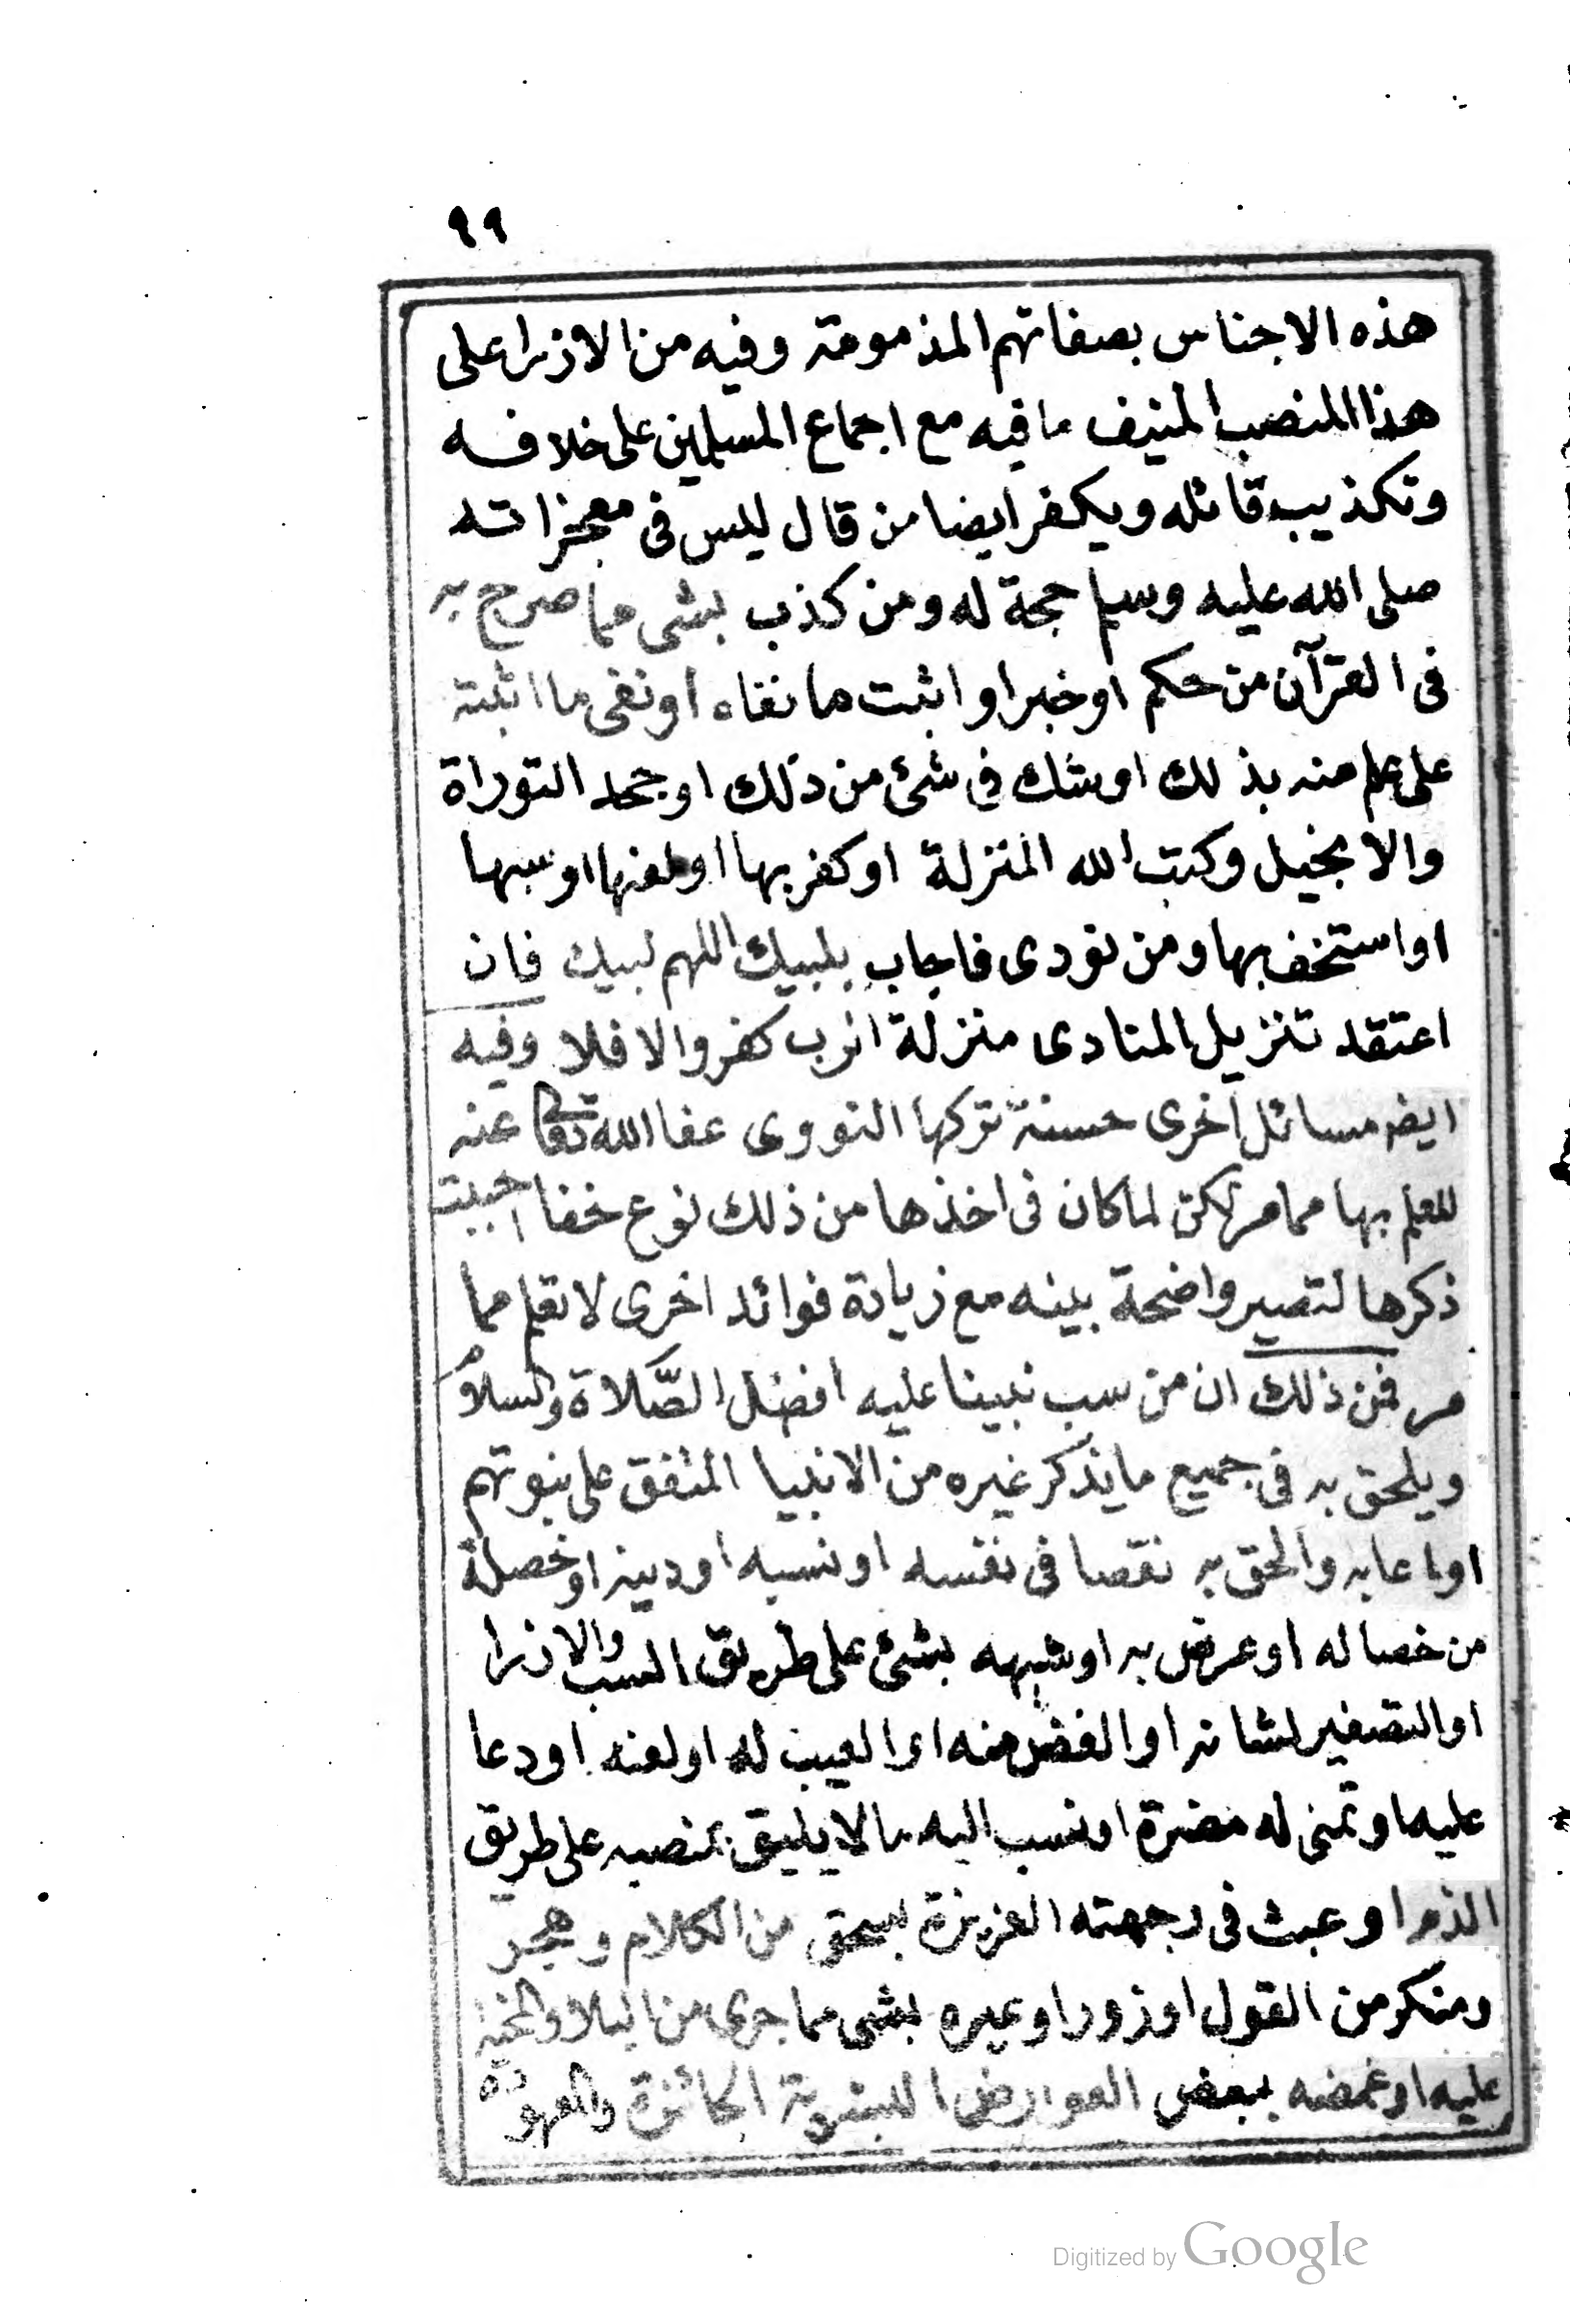 ٩٩
هذه الاجناس بصفاتهم المذمومة وفيه من الازرا على
هذا المنصب المنيف ما فيه مع اجماع المسلمين على خلافه
وتكذيب قائله ويكفر ايضا من قال ليس فى معجزاته
صلى الله عليه وسلم حجة له ومن كذب بشى مما صرح به
فى القرآن من حكم او خبر او اثبت ما نفاه او نفى ما اثبته
على علم منه بذلك او شك فى شئ من ذلك او جحد التوراة
والانجيل وكتب الله المنزلة او كفر بها او لعنها او سبها
او استخف بها ومن نودى فاجاب بلبيك اللهم لبيك فان
اعتقد تنزيل المنادى منزلة الرب كفر والا فلا وفيه
ايضه مسائل اخرى حسنة تركها النووى عفا الله تعالى عنه
للعلم بها مما مر لكن لما كان فى اخذها من ذلك نوع خفا احببت
ذكرها لتصير واضحة بينه مع زيادة فوائد اخرى لا تعلم مما
مر فمن ذلك ان من سب نبينا عليه افضل الصّلاة والسلام
ويلحق به فى جميع ما يذكر غيره من الانبيا المتفق على نبوتهم
او عابه والحق به نقصا فى نفسه او نسبه او دينه او خصلة
من خصاله او عرض به او شبهه بشئ على طريق السب والازرا
او التصغير لشانه او الغض منه او العيب له او لعنه او دعا
عليه او تمنى له مضرة او نسب اليه ما لا يليق بمنصبه على طريق
الذم او عبث فى جهته العزيزة بسخف من الكلام وهجر
ومنكر من القول او زور او عيره بشى مما جرى من البلا والمحنة
عليه او غمضه ببعض العوارض البشرية الجائزة والمعهودة
Digitized by Google